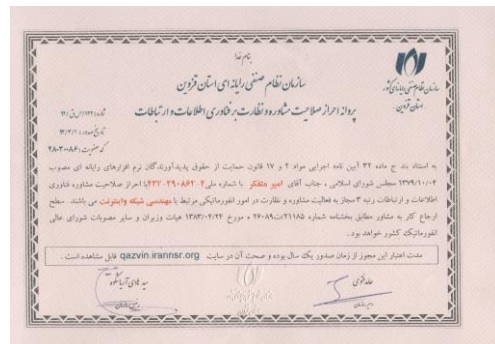 بنام خدا
سازمان نظام صنفی رایانه ای استان قزوین
سازمان نظام صنفی رایانه ای کشور
استان قزوین
پروانه احراز صلاحیت مشاوره و نظارت بر فناوری اطلاعات و ارتباطات
کد عضویت: ۲۸۰۳۰۰۸۶
به استناد بند ج ماده ۳۲ آیین نامه اجرایی مواد ۲ و ۱۷ قانون حمایت از حقوق پدیدآورندگان نرم افزارهای رایانه ای مصوب
۱۳۷۹/۱۰/۰۴ مجلس شورای اسلامی ، جناب آقای امیر متفکر با شماره ملی ۴۳۲۰۲۹۰۸۶۲ با احراز صلاحیت مشاوره فناوری
اطلاعات و ارتباطات رتبه ۳ مجاز به فعالیت مشاوره و نظارت در امور انفورماتیکی مرتبط با مهندسی شبکه واینترنت می باشند. سطح
ارجاع کار به مشاور مطابق بخشنامه شماره ۲۱۱۸۵/ت۲۶۰۸۹ه مورخ ۱۳۸۳/۰۴/۲۴ هیات وزیران و سایر مصوبات شورای عالی
انفورماتیک کشور خواهد بود.
مدت اعتبار این مجوز از زمان صدور یک سال بوده و صحت آن در سایت qazvin.irannsr.org قابل مشاهده است .